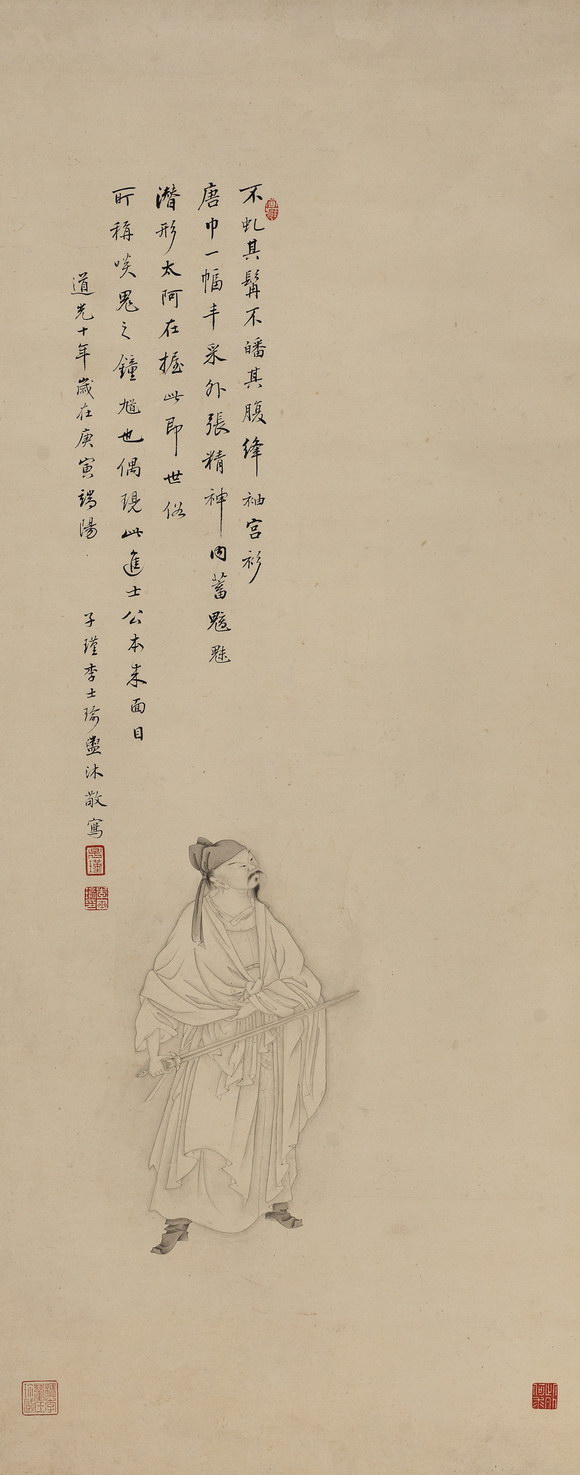 不虬其髯不皤其腹絳袖宮衫
唐巾一幅丰采外張精神內蓄魑魅
潛形太阿在握此即世俗
所稱啖鬼之鐘馗也偶現此進士公本來面目
道光十年歲在庚寅端陽
子瑾李士瑜盥沐敬寫